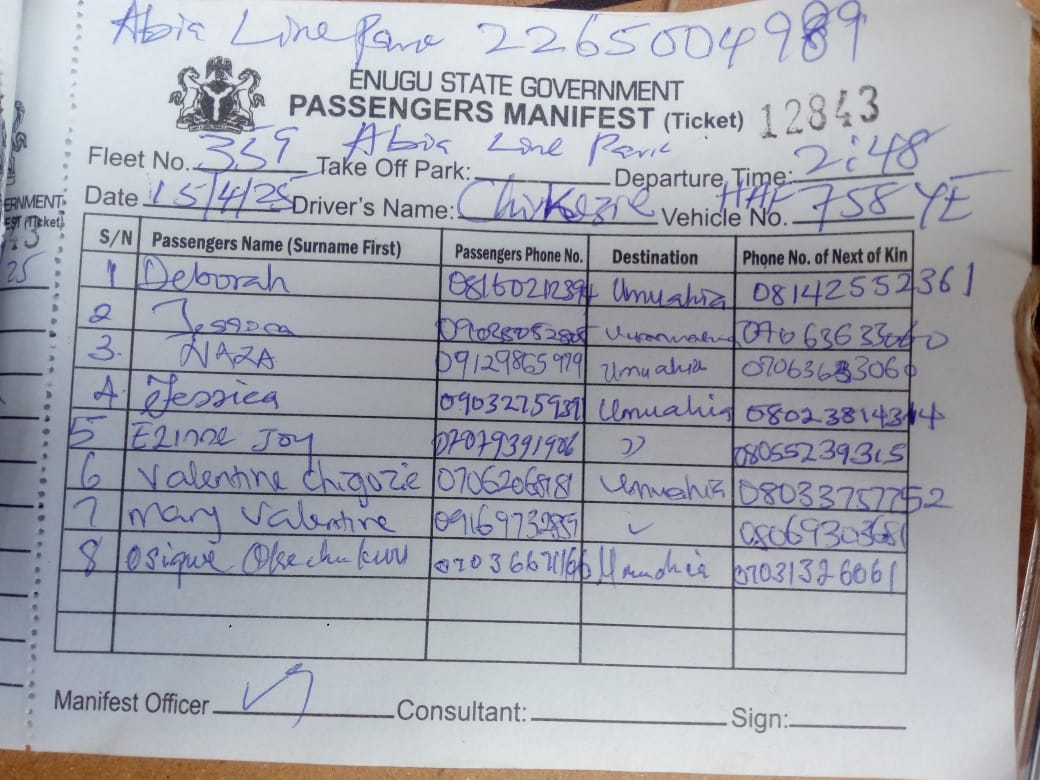 Abia Line Park 2265004989
ENUGU STATE GOVERNMENT
PASSENGERS MANIFEST (Ticket) 12843
Fleet No. 359 Take Off Park: Abia Line Park Departure Time: 2:48
Date 15/4/25 Driver's Name: Chikezie Vehicle No. 758 YE
S/N Passengers Name (Surname First) Passengers Phone No. Destination Phone No. of Next of Kin
1 Deborah Umuahia 08142552361
2 Jessica
3. NAZA 09129865979 Umuahia
4. Jessica Umuahia
5 Ezinne Joy 07079391906 " 08055239315
6 Valentine Chigozie Umuahia 08033757752
7 Mary Valentine 09169732857
8 Osigwe Okechukwu Umuahia 07031326061
Manifest Officer Consultant: Sign:
ERNMENT
EST (Ticket)
25